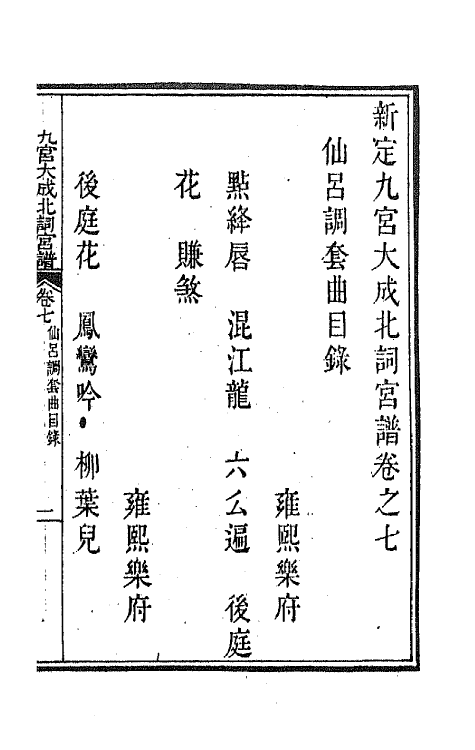 新定九宮大成北詞宮譜卷之七
仙呂調套曲目錄
雍熙樂府
點絳唇　混江龍　六么遍　後庭
花　賺煞
雍熙樂府
後庭花　鳳鸞吟　柳葉兒
九宮大成北詞宮譜　卷七　仙呂調套曲目錄　一